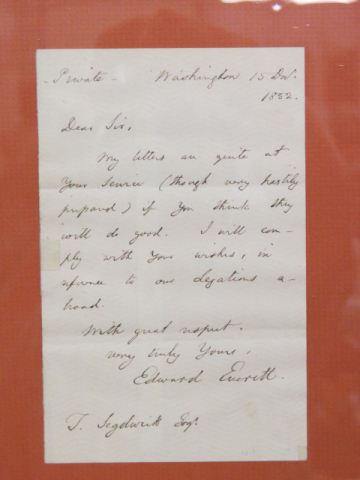 Private - Washington 15 Dec.
1852.
Dear Sir,
My letters are quite at
Your Service (though very hastily
prepared) if You think they
will do good. I will com-
ply with Your wishes, in
reference to our legations a-
broad.
With great respect.
very truly Yours,
Edward Everett.
T. Sedgwick Esqr.